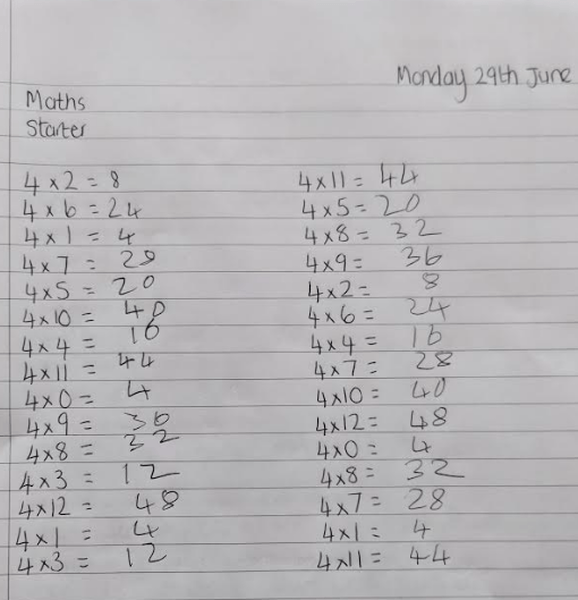 Monday 29th June
Maths
Starter
4 x 2 = 8
4 x 6 = 24
4 x 1 = 4
4 x 7 = 28
4 x 5 = 20
4 x 10 = 40
4 x 4 = 16
4 x 11 = 44
4 x 0 = 4
4 x 9 = 36
4 x 8 = 32
4 x 3 = 12
4 x 12 = 48
4 x 1 = 4
4 x 3 = 12
4 x 11 = 44
4 x 5 = 20
4 x 8 = 32
4 x 9 = 36
4 x 2 = 8
4 x 6 = 24
4 x 4 = 16
4 x 7 = 28
4 x 10 = 40
4 x 12 = 48
4 x 0 = 4
4 x 8 = 32
4 x 7 = 28
4 x 1 = 4
4 x 11 = 44